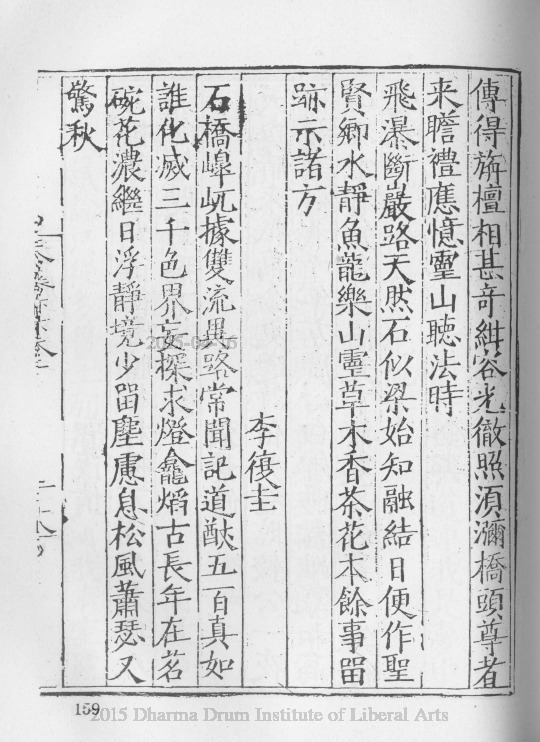 傳得旃檀相甚竒紺容光徹照湏瀰橋頭尊者
来瞻禮應憶靈山聴法時
飛瀑斷巖路天然石似梁始知融結日便作聖
賢鄉水靜魚龍樂山靈草木香茶花本餘事畱
跡示諸方
李復圭
石橋嶂屼據雙流異路常聞記道猷五百真如
誰化滅三千色界妄探求燈龕熖古長年在茗
碗花濃繼日浮靜境少畱塵慮息松風蕭瑟又
驚秋
159
2015 Dharma Drum Institute of Liberal Arts